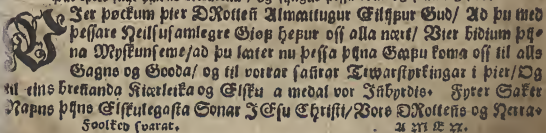 VJer þøckum þier DRotteñ Almættugur Eilijfur Gud/ Ad þu med
þessare Heilsusamlegre Giøf hefur oss alla nært/ Vier bidium þijna
na Myskunseme/ad þu later nu þessa þijna Gaafu koma oss til alls
Gagns og Gooda/ og til vorrar sañrar Truarstyrkingar i þier/ Og
til eins breñanda Kiærleika og Elsku a medal vor Jñbyrdis. Fyrer Saker
Nafns þijns Elskulegasta Sonar JEsu Christi/ Vors DRotteñs og Herra.
Foolked svarar. AMEN.